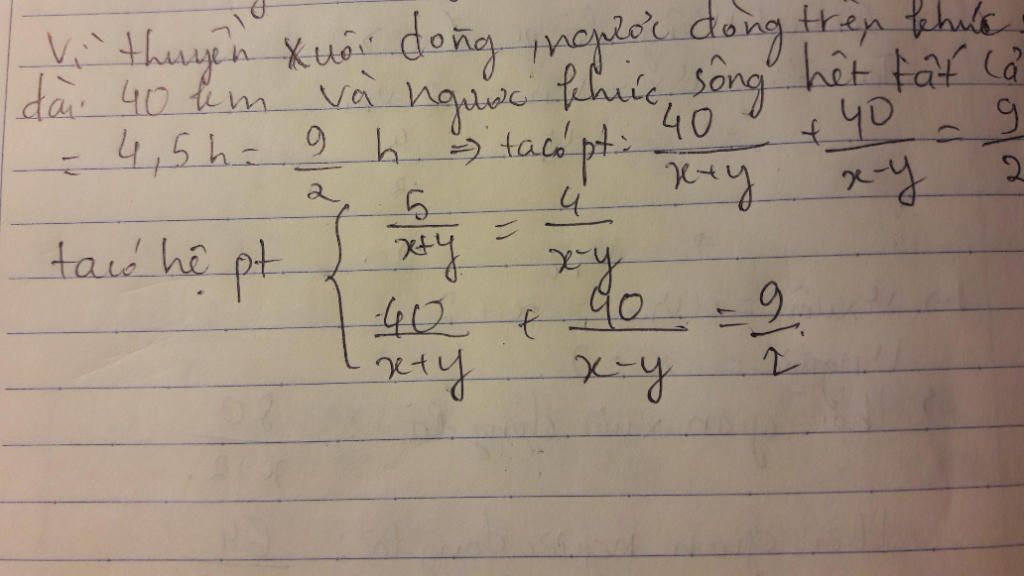 Vì thuyền xuôi dòng, ngược dòng trên khúc
dài 40 km và ngược khúc sông hết tất cả
= 4,5h = 9/2 h => ta có pt: 40/(x+y) + 40/(x-y) = 9/2
ta có hệ pt { 5/(x+y) = 4/(x-y)
40/(x+y) + 40/(x-y) = 9/2